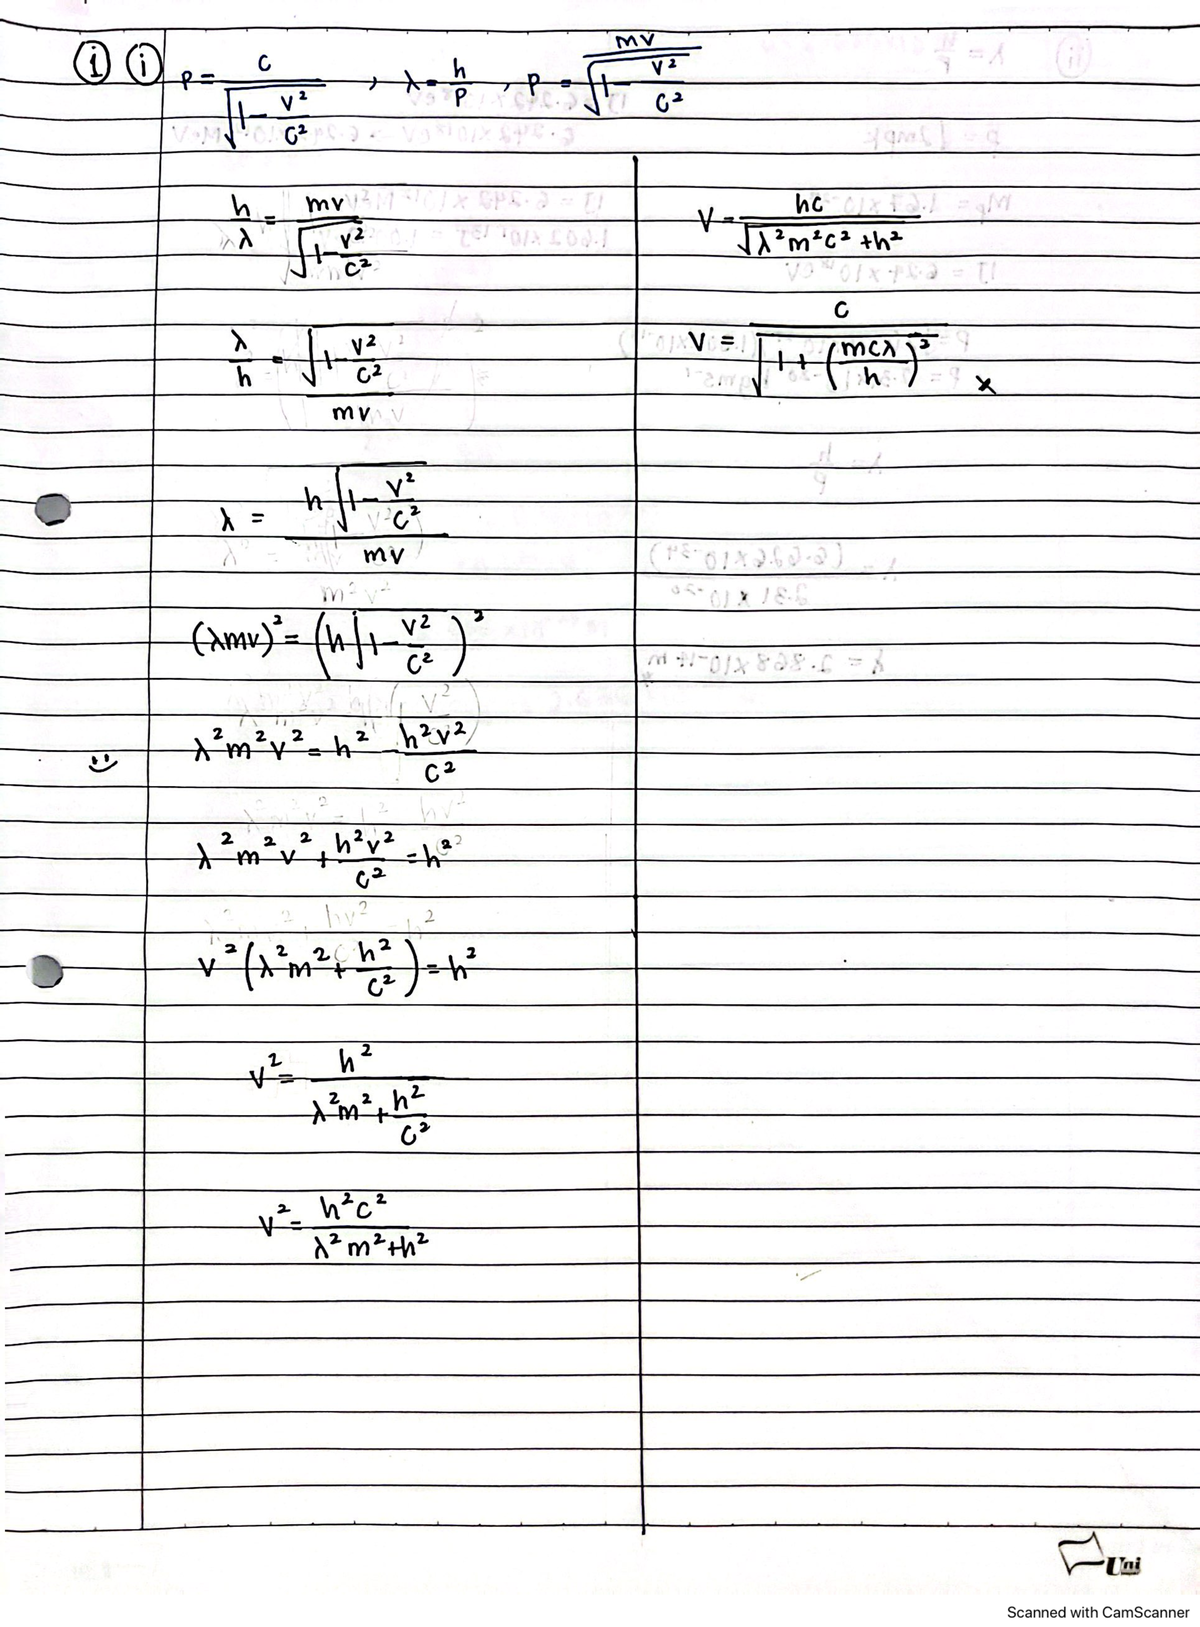 ① ⓘ P = c / √(1 - v²/c²) , λ = h/p , p = mv / √(1 - v²/c²)
h/λ = mv / √(1 - v²/c²)
λ/h = √(1 - v²/c²) / mv
λ = h√(1 - v²/c²) / mv
(λmv)² = (h√(1 - v²/c²))²
λ²m²v² = h² - h²v²/c²
λ²m²v² + h²v²/c² = h²
v²(λ²m² + h²/c²) = h²
v² = h² / (λ²m² + h²/c²)
v² = h²c² / (λ²m² + h²)
V = hc / √(λ²m²c² + h²)
V = c / √(1 + (mcλ/h)²) ×
Uni
Scanned with CamScanner